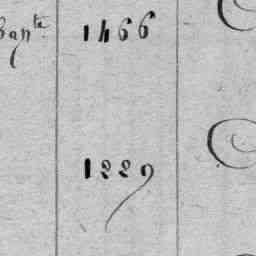 Bapte 1466
1229